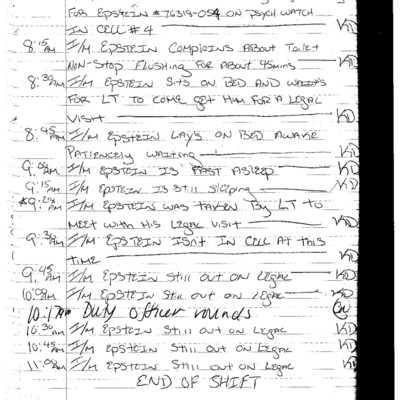 FOR EPSTEIN #76318-054 ON PSYCH WATCH
IN CELL #4 KD
8:15AM I/M EPSTEIN COMPLAINS ABOUT TOILET
NON-STOP FLUSHING FOR ABOUT 45MINS KD
8:30AM I/M EPSTEIN SITS ON BED AND WAITS
FOR LT TO COME GET HIM FOR A LEGAL
VISIT KD
8:45AM I/M EPSTEIN LAYS ON BED AWAKE
PATIENCELY WAITING KD
9:00AM I/M EPSTEIN IS FAST ASLEEP KD
9:15AM I/M EPSTEIN IS STILL SLEEPING KD
I/M EPSTEIN WAS TAKEN BY LT TO
MEET WITH HIS LEGAL VISIT KD
9:30AM I/M EPSTEIN ISN'T IN CELL AT THIS
TIME KD
9:45AM I/M EPSTEIN STILL OUT ON LEGAL KD
10:00AM I/M EPSTEIN STILL OUT ON LEGAL KD
Duty officer rounds
10:30AM I/M EPSTEIN STILL OUT ON LEGAL KD
10:45AM I/M EPSTEIN STILL OUT ON LEGAL KD
11:00AM I/M EPSTEIN STILL OUT ON LEGAL KD
END OF SHIFT